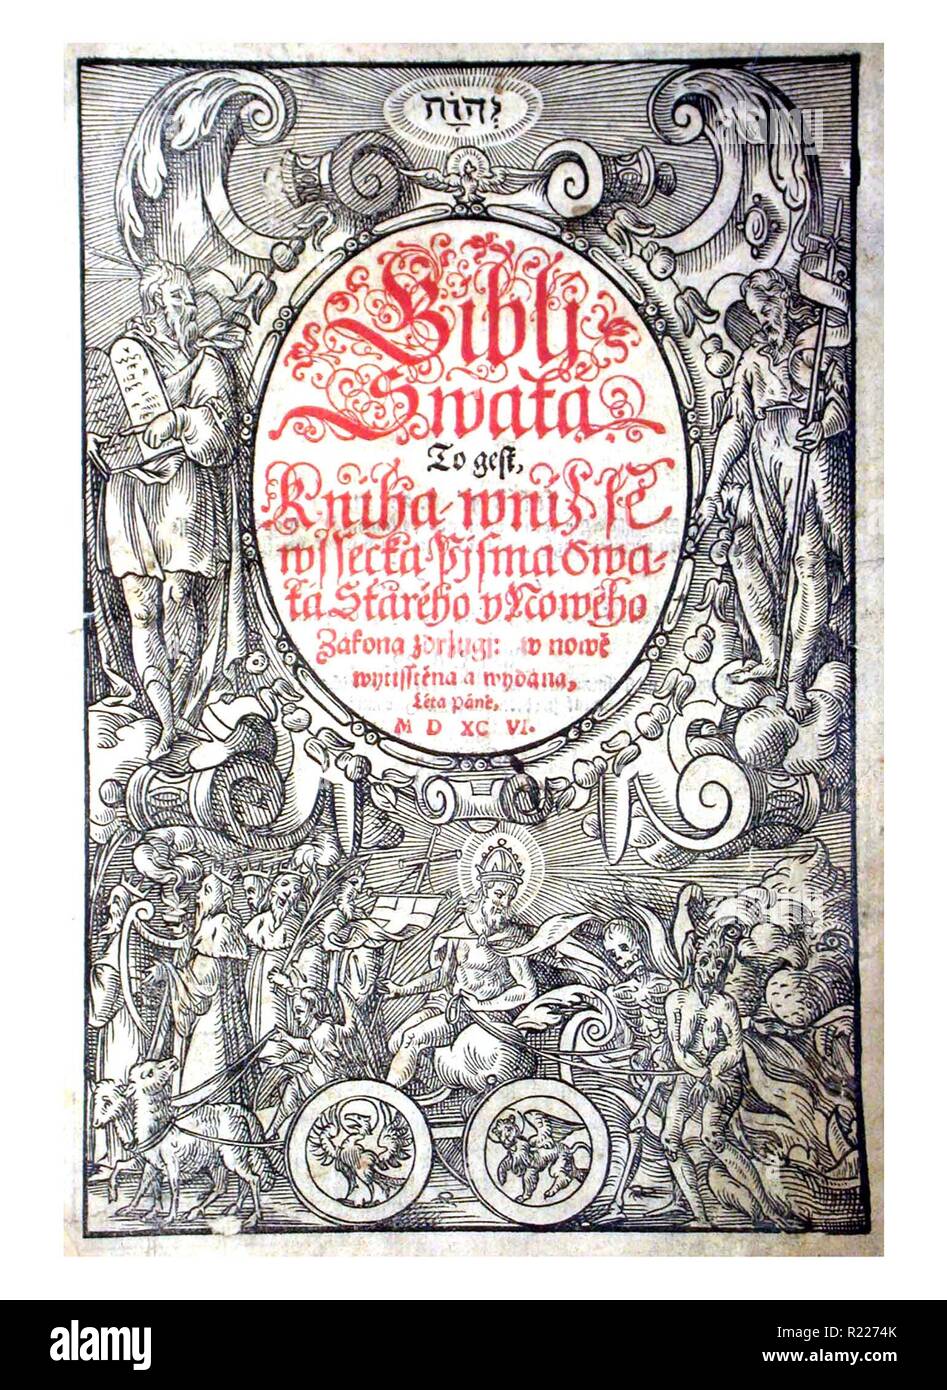 יְהוָֹה
Biblj
Swatá
To gest,
Kniha, wniž se
wssecka Pjsma Swa-
tá Starého y Nowého
Zákona zdržugj: w nowě
wytisstěna a wydána,
Léta Páně,
M D XC VI.
alamy
alamy
alamy
Image ID: R2274K
www.alamy.com